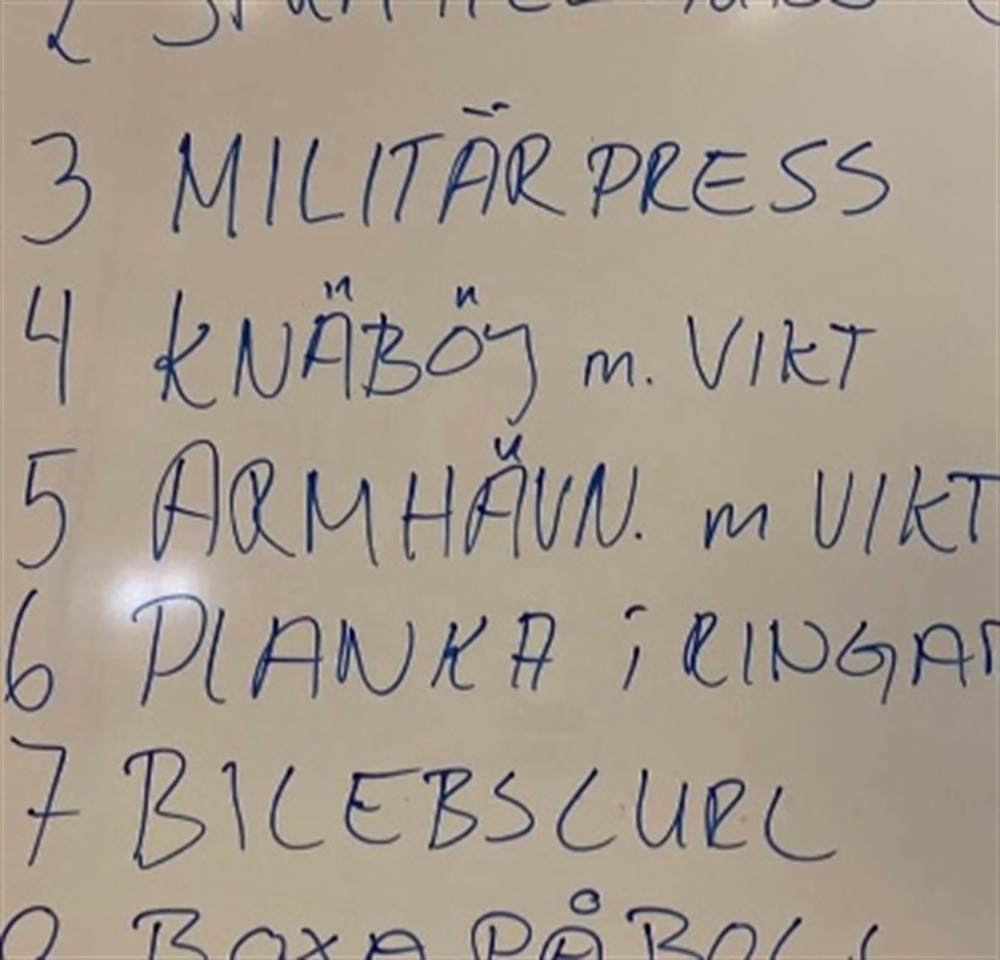 3 MILITÄRPRESS
4 KNÄBÖJ m. VIKT
5 ARMHÄVN. m VIKT
6 PLANKA i RINGAR
7 BICEBSCURL
BOXA PÅ BOLL